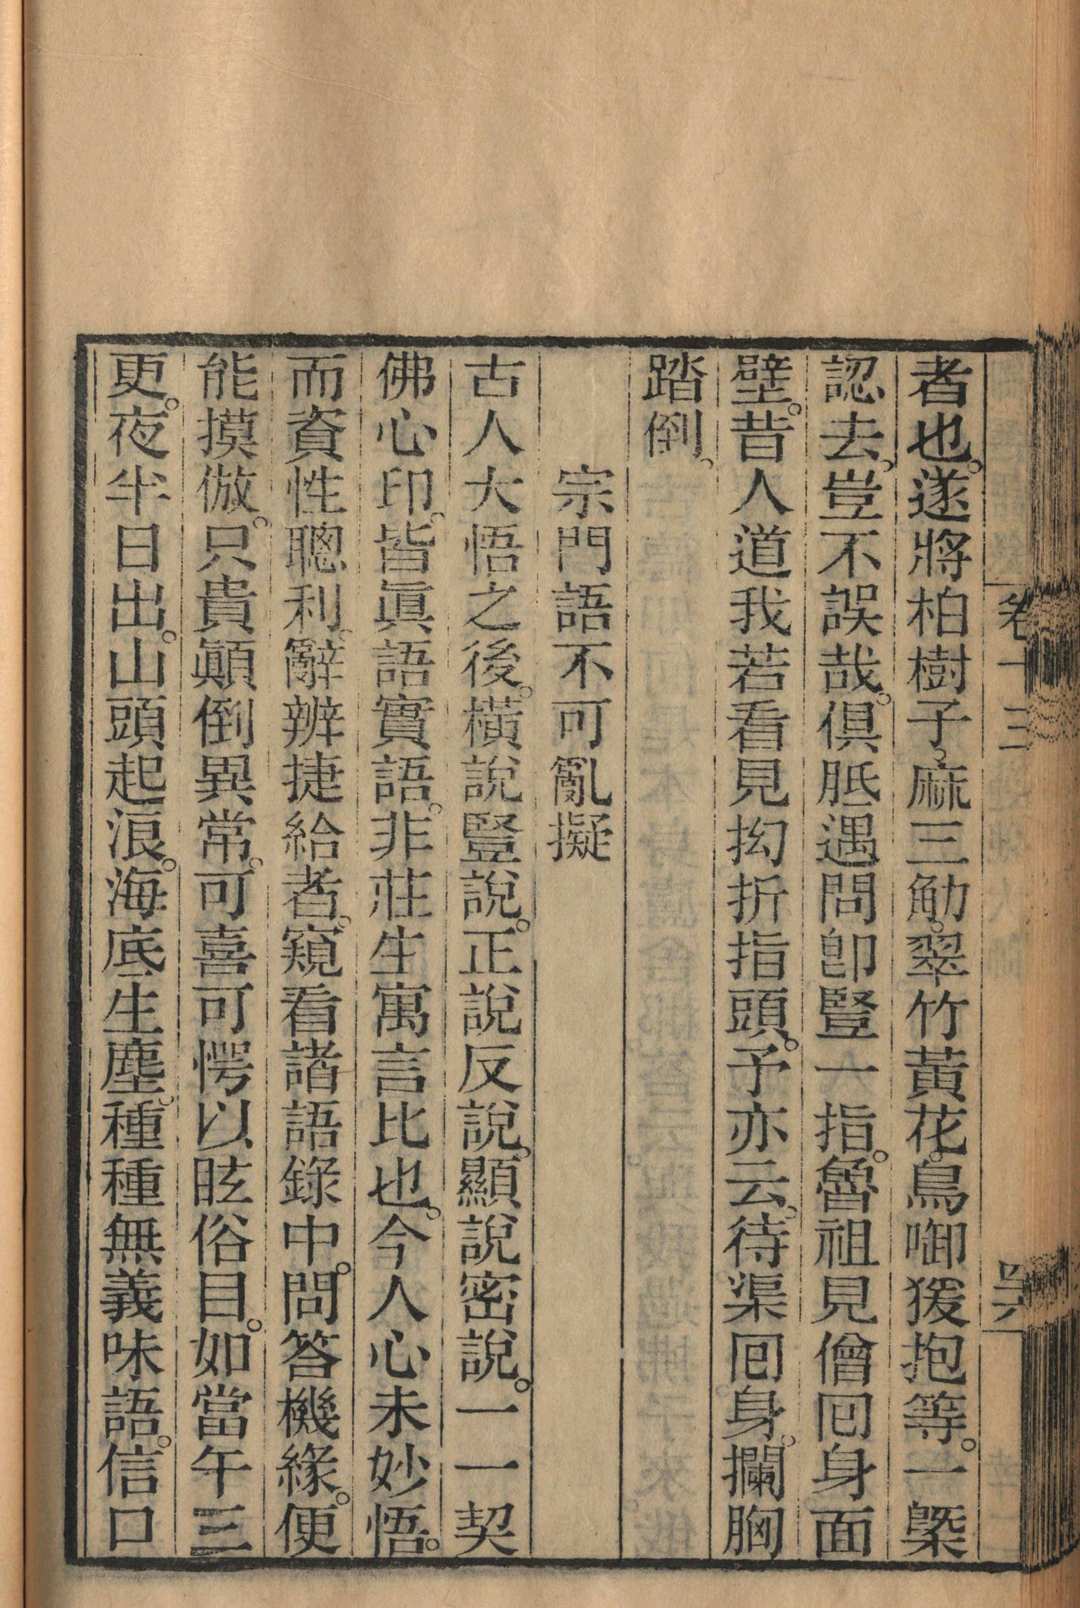 卷十三
者也。遂將柏樹子。麻三觔。翠竹黃花。鳥啣猨抱等。一槩
認去。豈不誤哉。俱胝遇問卽豎一指。魯祖見僧囘身面
壁。昔人道我若看見拗折指頭。予亦云。待渠囘身。攔胸
踏倒。
宗門語不可亂擬
古人大悟之後。橫說豎說。正說反說。顯說密說。一一契
佛心印。皆眞語實語。非莊生寓言比也。今人心未妙悟。
而資性聰利。辭辨捷給者。窺看諸語錄中。問答機緣。便
能摸倣。只貴顚倒異常。可喜可愕以眩俗目。如當午三
更。夜半日出。山頭起浪。海底生塵。種種無義味語。信口